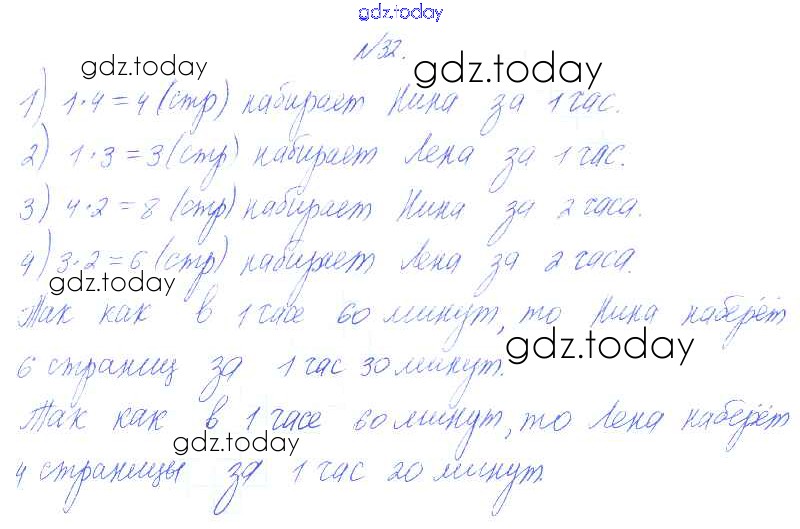 gdz.today
№32.
gdz.today
gdz.today
1) 1·4=4 (стр) набирает Нина за 1 час.
2) 1·3=3 (стр) набирает Лена за 1 час.
3) 4·2=8 (стр) набирает Нина за 2 часа.
4) 3·2=6 (стр) набирает Лена за 2 часа.
gdz.today
Так как в 1 часе 60 минут, то Нина наберёт
gdz.today
6 страниц за 1 час 30 минут.
Так как в 1 часе 60 минут, то Лена наберёт
gdz.today
4 страницы за 1 час 20 минут.